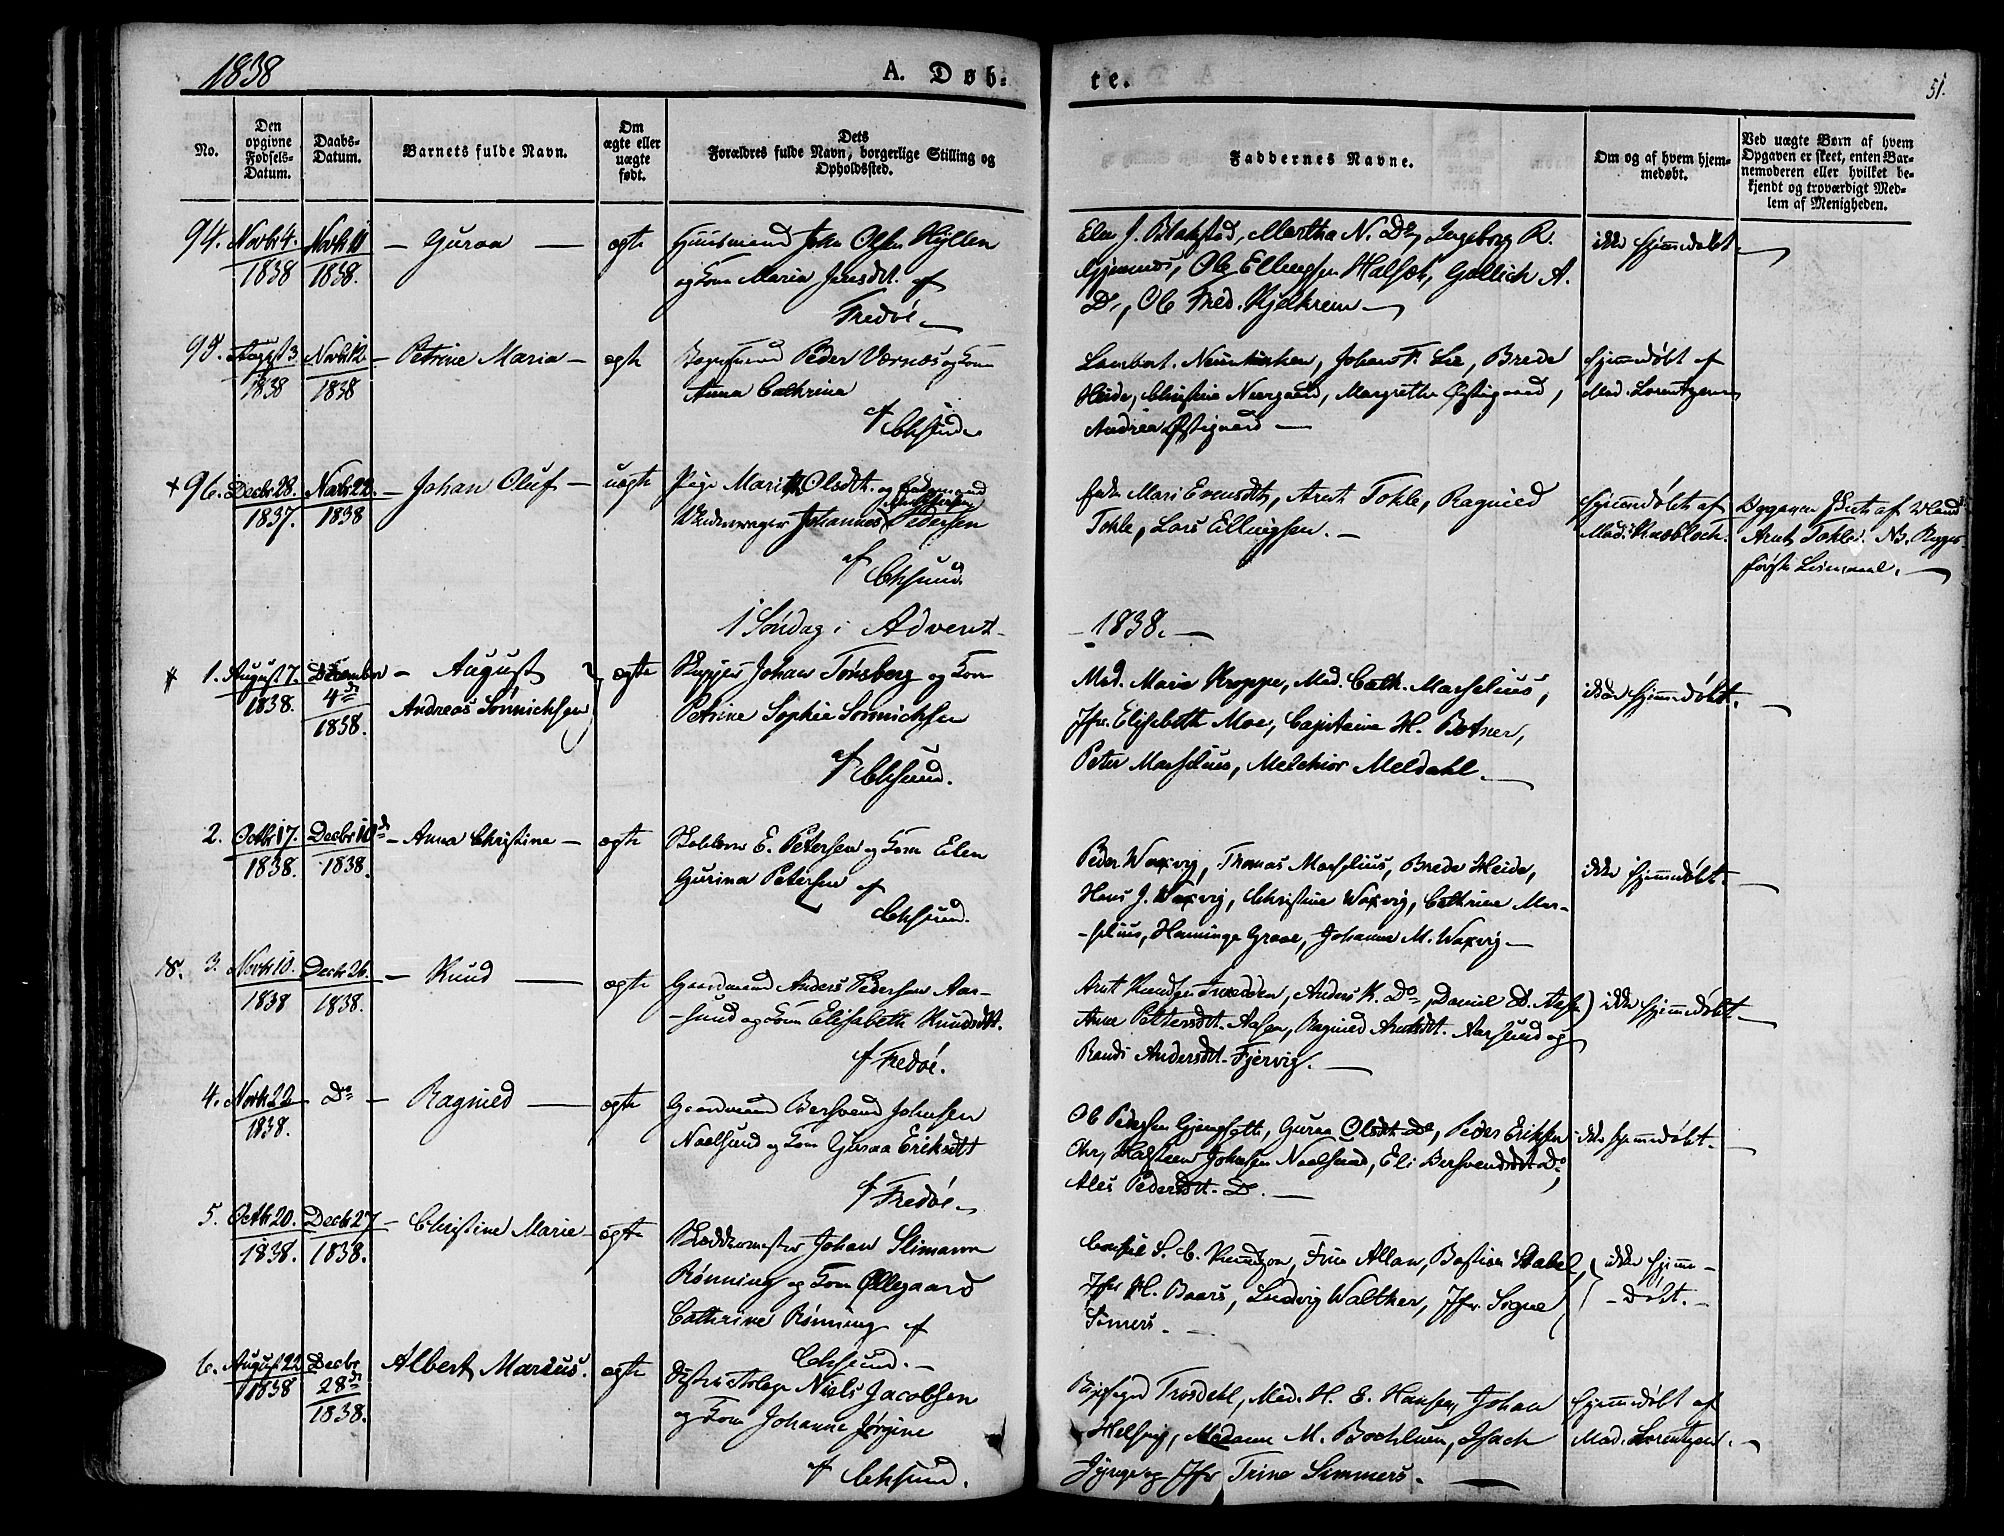 1838
A. Døb-
te.
51.
No.
Den opgivne Fødsels-Datum.
Daabs-Datum.
Barnets fulde Navn.
Om ægte eller uægte født.
Dets Forældres fulde Navn, borgerlige Stilling og Opholdssted.
Faddernes Navne.
Om og af hvem hjem-medøbt.
Ved uægte Børn af hvem Opgaven er skeet, enten Bar-nemoderen eller hvilket be-kjendt og troværdigt Med-lem af Menigheden.
94. Novbr 4. 1838 Novbr 11 1838. – Guraa – ægte
Huusmand John Olsen Hyllen
og Kone Maria Jensdt. af
Fredøe
Elen J. Blakstad, Martha N. Do, Ingeborg R.
Gjemnes, Ole Ellingsen Halsæt, Gullich A.
Do, Ole Fred. Kjølkrem
ikke hjemmedøbt
95. August 3. 1838 Novbr 12. 1838 – Petrine Maria – ægte
Peder Værnæs og Kone
Anna Cathrina
af Chrsund
Lambert Neumann, Johan F. Lie, Brede
Heide, Christine Neergaard, Margrethe Østigaard,
Andrea Østigaard
hjemmedøbt af
Mad. Lorentzen
+ 96. Decbr 28. 1837. Novbr 22. 1838 – Johan Oluf – uægte
Pige Marith Olsdt. og
Johannes Pedersen
af Chrsund.
Mari Evensdt, Arnt Tokle, Ragnild
Tokle, Lars Ellingsen.
hjemmedøbt af
Mad.
Arnt Tokle. NB. Piges
første Leiermaal.
1 Søndag i Advent
1838.
1. August 7. 1838. December 4de 1838. – August
Andreas Sønnichsen ægte
Skipper Johan Tønsberg og Kone
Petrine Sophie Sønnichsen
af Chrsund.
Mad. Maria Kroppe, Mad. Cath. Marselius,
Jfr. Elisabeth Moe, Capitaine H. Botner,
Peter Marselius, Melchior Meldahl.
ikke hjemmedøbt.
2. Octbr 17. 1838. Decbr 10de 1838. – Anna Christine – ægte
E. Petersen og Kone Elen
Gurina Petersen af
Chrsund.
Peder Waxvig, Thomas Marselius, Brede Heide,
Hans J. Waxvig, Christine Waxvig, Cathrine Mar-
-selius, Henninge Graae, Johanna M. Waxvig
ikke hjemmedøbt.
3. Novbr 10. 1838 Decbr 26. 1838. – Knud – ægte
Gaardmand Anders Pedersen Aar-
-sund og Kone Elisabeth Knudsdt.
af Fredøe.
Arnt Knudsen, Anders K. Do, Daniel
Anne Pettersdt. Aasen, Ragnild Arntsdt. Aarsund og
Randi Andersdt. Fjervig.
ikke hjemmedøbt.
4. Novbr 22 1838. Do – Ragnild – ægte
Gaardmand Bersvend Johnsen
Naalsund og Kone Guraa Eriksdt
af Fredøe
Ole Pedersen, Guraa Olsdt. Do, Peder Eriksen
Johnsen Naalsund, Eli Bersvendsdt Do,
Ales Pedersdt. Do.
ikke hjemmedøbt.
5. Octbr 20. 1838. Decbr 27 1838. – Christine Marie – ægte
Skræddermester Johan Slimann
Rønning og Kone Øllegaard
Cathrine Rønning af
Chrsund.
Consul S. C. Knudtzon, Frue Allan, Bastian Stabel,
Jfr H. Baars, Ludvig Walther, Jfr. Signe
Simers.
ikke hjemme-
-døbt.
6. August 22 1838 Decbr 28de 1838. Albert Marius. ægte
Districtslæge Niels Jacobsen
og Kone Johanne Jørgine
af Chrsund.
Trosdahl, Mad. H. E. Hansen, Johan
Helsing, Madame M. Bochlum, Isach
Jürgens, Jfr Trine Simmers.
hjemmedøbt af
Mad. Lorentzen.